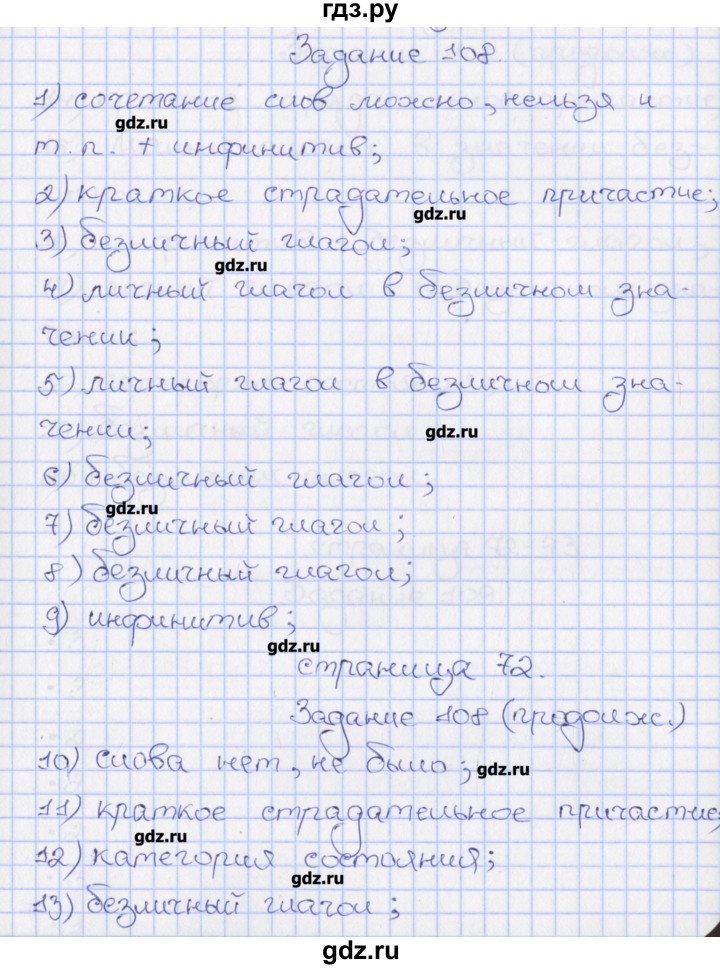 гдз.ру
Задание 108.
1) сочетание слов можно, нельзя и
gdz.ru
т.п. + инфинитив;
2) краткое страдательное причастие;
gdz.ru
3) безличный глагол;
gdz.ru
4) личный глагол в безличном зна-
чении;
5) личный глагол в безличном зна-
чении;
gdz.ru
6) безличный глагол;
gdz.ru
7) безличный глагол;
8) безличный глагол;
9) инфинитив;
gdz.ru
страница 72.
Задание 108 (продолж.)
10) слова нет, не было;
gdz.ru
11) краткое страдательное причастие;
gdz.ru
12) категория состояния;
gdz.ru
13) безличный глагол;
gdz.ru